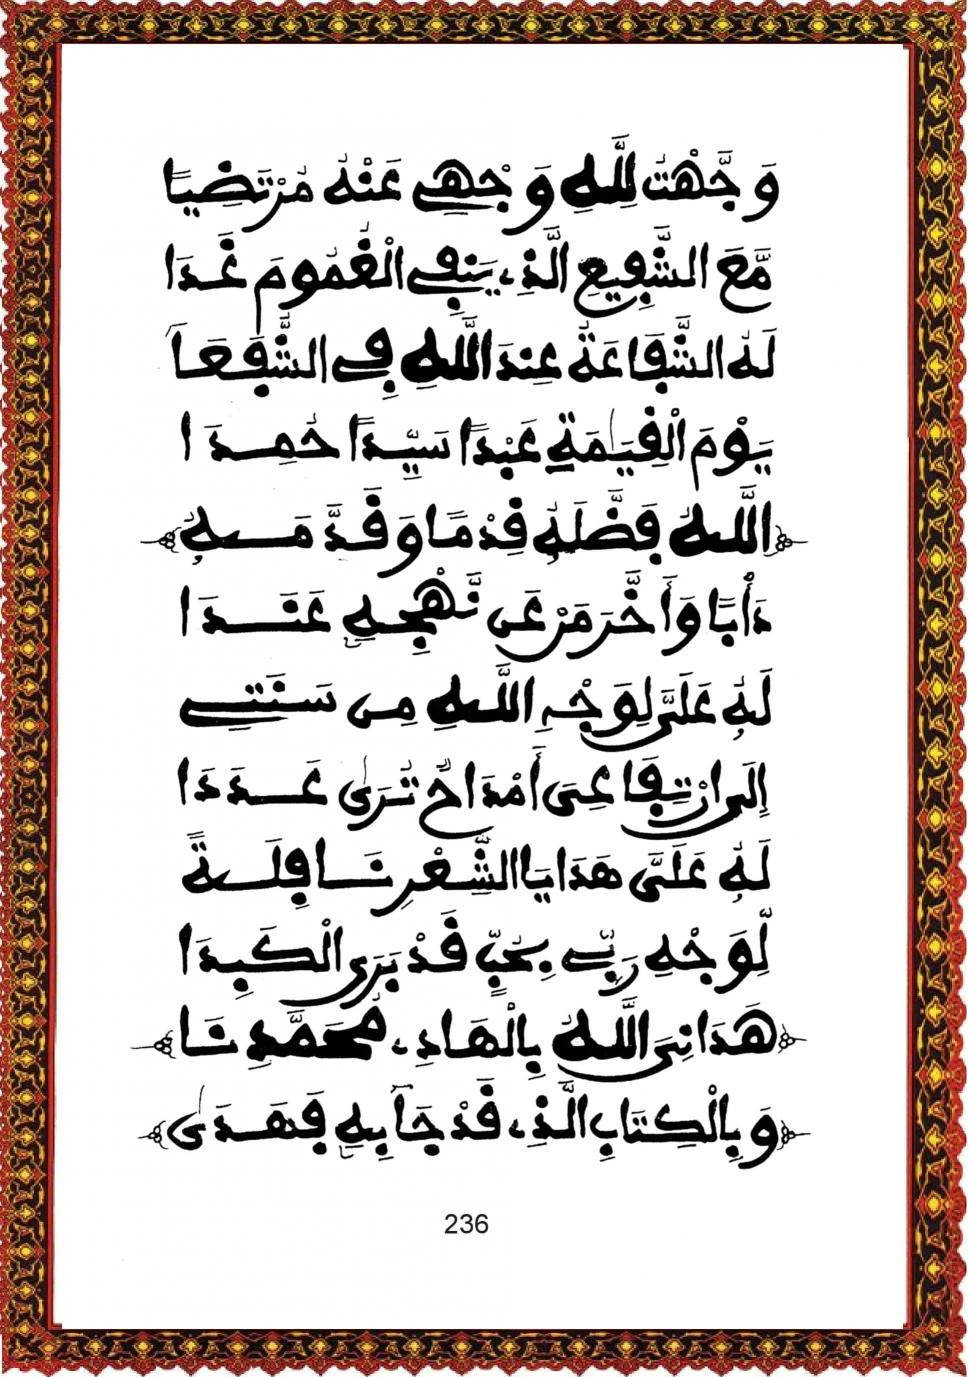 وَجَّهْتُ لِلَّهِ وَجْهِي عَنْهُ مُرْتَضِيًا
مَّعَ الشَّفِيعِ الَّذِي يَنْفِي الْغُمُومَ غَدَا
لَهُ الشَّفَاعَةُ عِندَ اللَّهِ فِي الشُّفَعَا
يَوْمَ الْقِيَامَةِ عَبْدًا سَيِّدًا حُمِدَا
اللَّهُ فَضَّلَهُ قِدْمًا وَقَدَّمَهُ
دَأْبًا وَأَخَّرَ مَرْ عَن نَّهْجِهِ عَنَدَا
لَهُ عَلَيَّ لِوَجْهِ اللَّهِ مِن سَنَتِي
إِلَى ارْتِفَاعِيَ أَمْدَاحٌ تُرَى عَدَدَا
لَهُ عَلَيَّ هَدَايَا الشِّعْرِ نَافِلَةً
لِّوَجْهِ رَبِّي بِحُبٍّ قَدْ بَرَى الْكَبِدَا
هَدَانِيَ اللَّهُ بِالْهَادِي مُحَمَّدِنَا
وَبِالْكِتَابِ الَّذِي قَدْ جَا بِهِ فَهَدَى
236